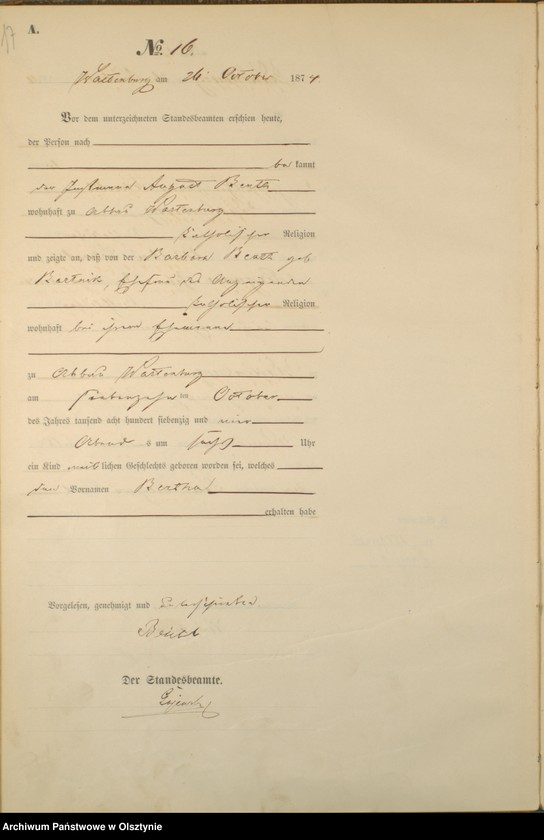 17
A.
No. 16.
Wartenburg am 26 October 1874
Vor dem unterzeichneten Standesbeamten erschien heute,
der Person nach
bekannt
der August
wohnhaft zu Wartenburg
katholischer Religion
und zeigte an, daß von der Barbara geb.
Ehefrau des Anzeigenden
katholischer Religion
wohnhaft bei ihrem Ehemanne
zu Wartenburg
am siebenzehnten October
des Jahres tausend acht hundert siebenzig und vier
Abends um Uhr
ein Kind weiblichen Geschlechts geboren worden sei, welches
den Vornamen Bertha
erhalten habe
Vorgelesen, genehmigt und
Der Standesbeamte.
Archiwum Państwowe w Olsztynie